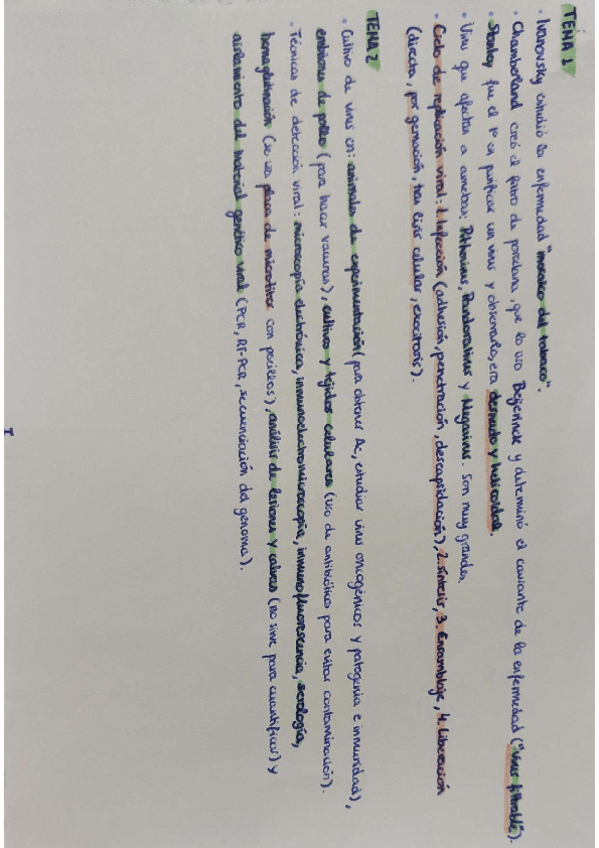 TEMA 1
· Ivanovsky estudió la enfermedad "mosaico del tabaco".
· Chamberland creó el filtro de porcelana, que lo usó Beijerinck y determinó el causante de la enfermedad ("virus filtrable").
· Stanley fue el 1º en purificar un virus y observarlo, era desnudo y helicoidal.
· Virus que afectan a amebas: Pithovirus, Pandoravirus y Megavirus. Son muy grandes.
· Ciclo de replicación viral: 1. Infección (adhesión, penetración, descapsidación), 2. síntesis, 3. Ensamblaje, 4. Liberación
(directa, por gemación, tras lisis celular, exocitosis).
TEMA 2
· Cultivo de virus en: animales de experimentación (para obtener Ac, estudiar virus oncogénicos y patogenia e inmunidad),
embriones de pollo (para hacer vacunas), cultivo y tejidos celulares (uso de antibióticos para evitar contaminación).
· Técnicas de detección viral: microscopía electrónica, inmunoelectromicroscopía, inmunofluorescencia, serología,
hemaglutinación (se usa placa de microtiter con pocillos), análisis de lesiones y calvas (no sirve para cuantificar) y
aislamiento del material genético viral (PCR, RT-PCR, secuenciación del genoma).
I